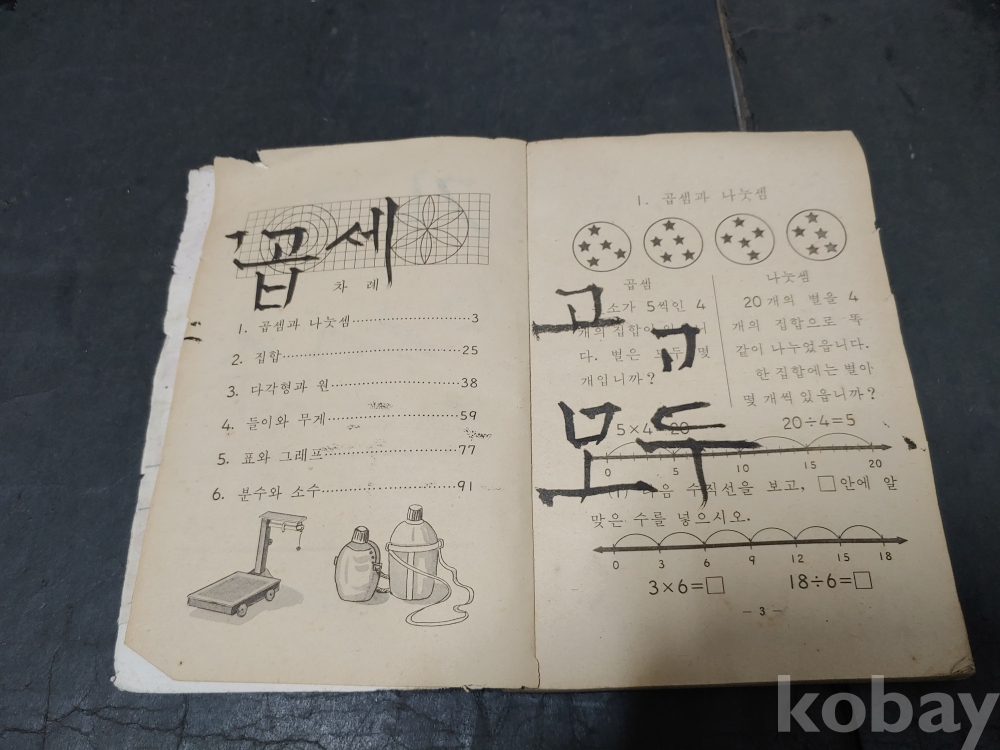 곱세
차 례
1. 곱셈과 나눗셈 3
2. 집합 25
3. 다각형과 원 38
4. 들이와 무게 59
5. 표와 그래프 77
6. 분수와 소수 91
1. 곱셈과 나눗셈
곱셈
소가 5씩인 4
개의 집합이
다. 별은 모두 몇
개입니까?
고
모두
나눗셈
20개의 별을 4
개의 집합으로 똑
같이 나누었읍니다.
한 집합에는 별이
몇 개씩 있읍니까?
5×4 20
20÷4=5
0 5 10 15 20
(1) 다음 수직선을 보고, □안에 알
맞은 수를 넣으시오.
0 3 6 9 12 15 18
3×6=□ 18÷6=□
– 3 –
kobay